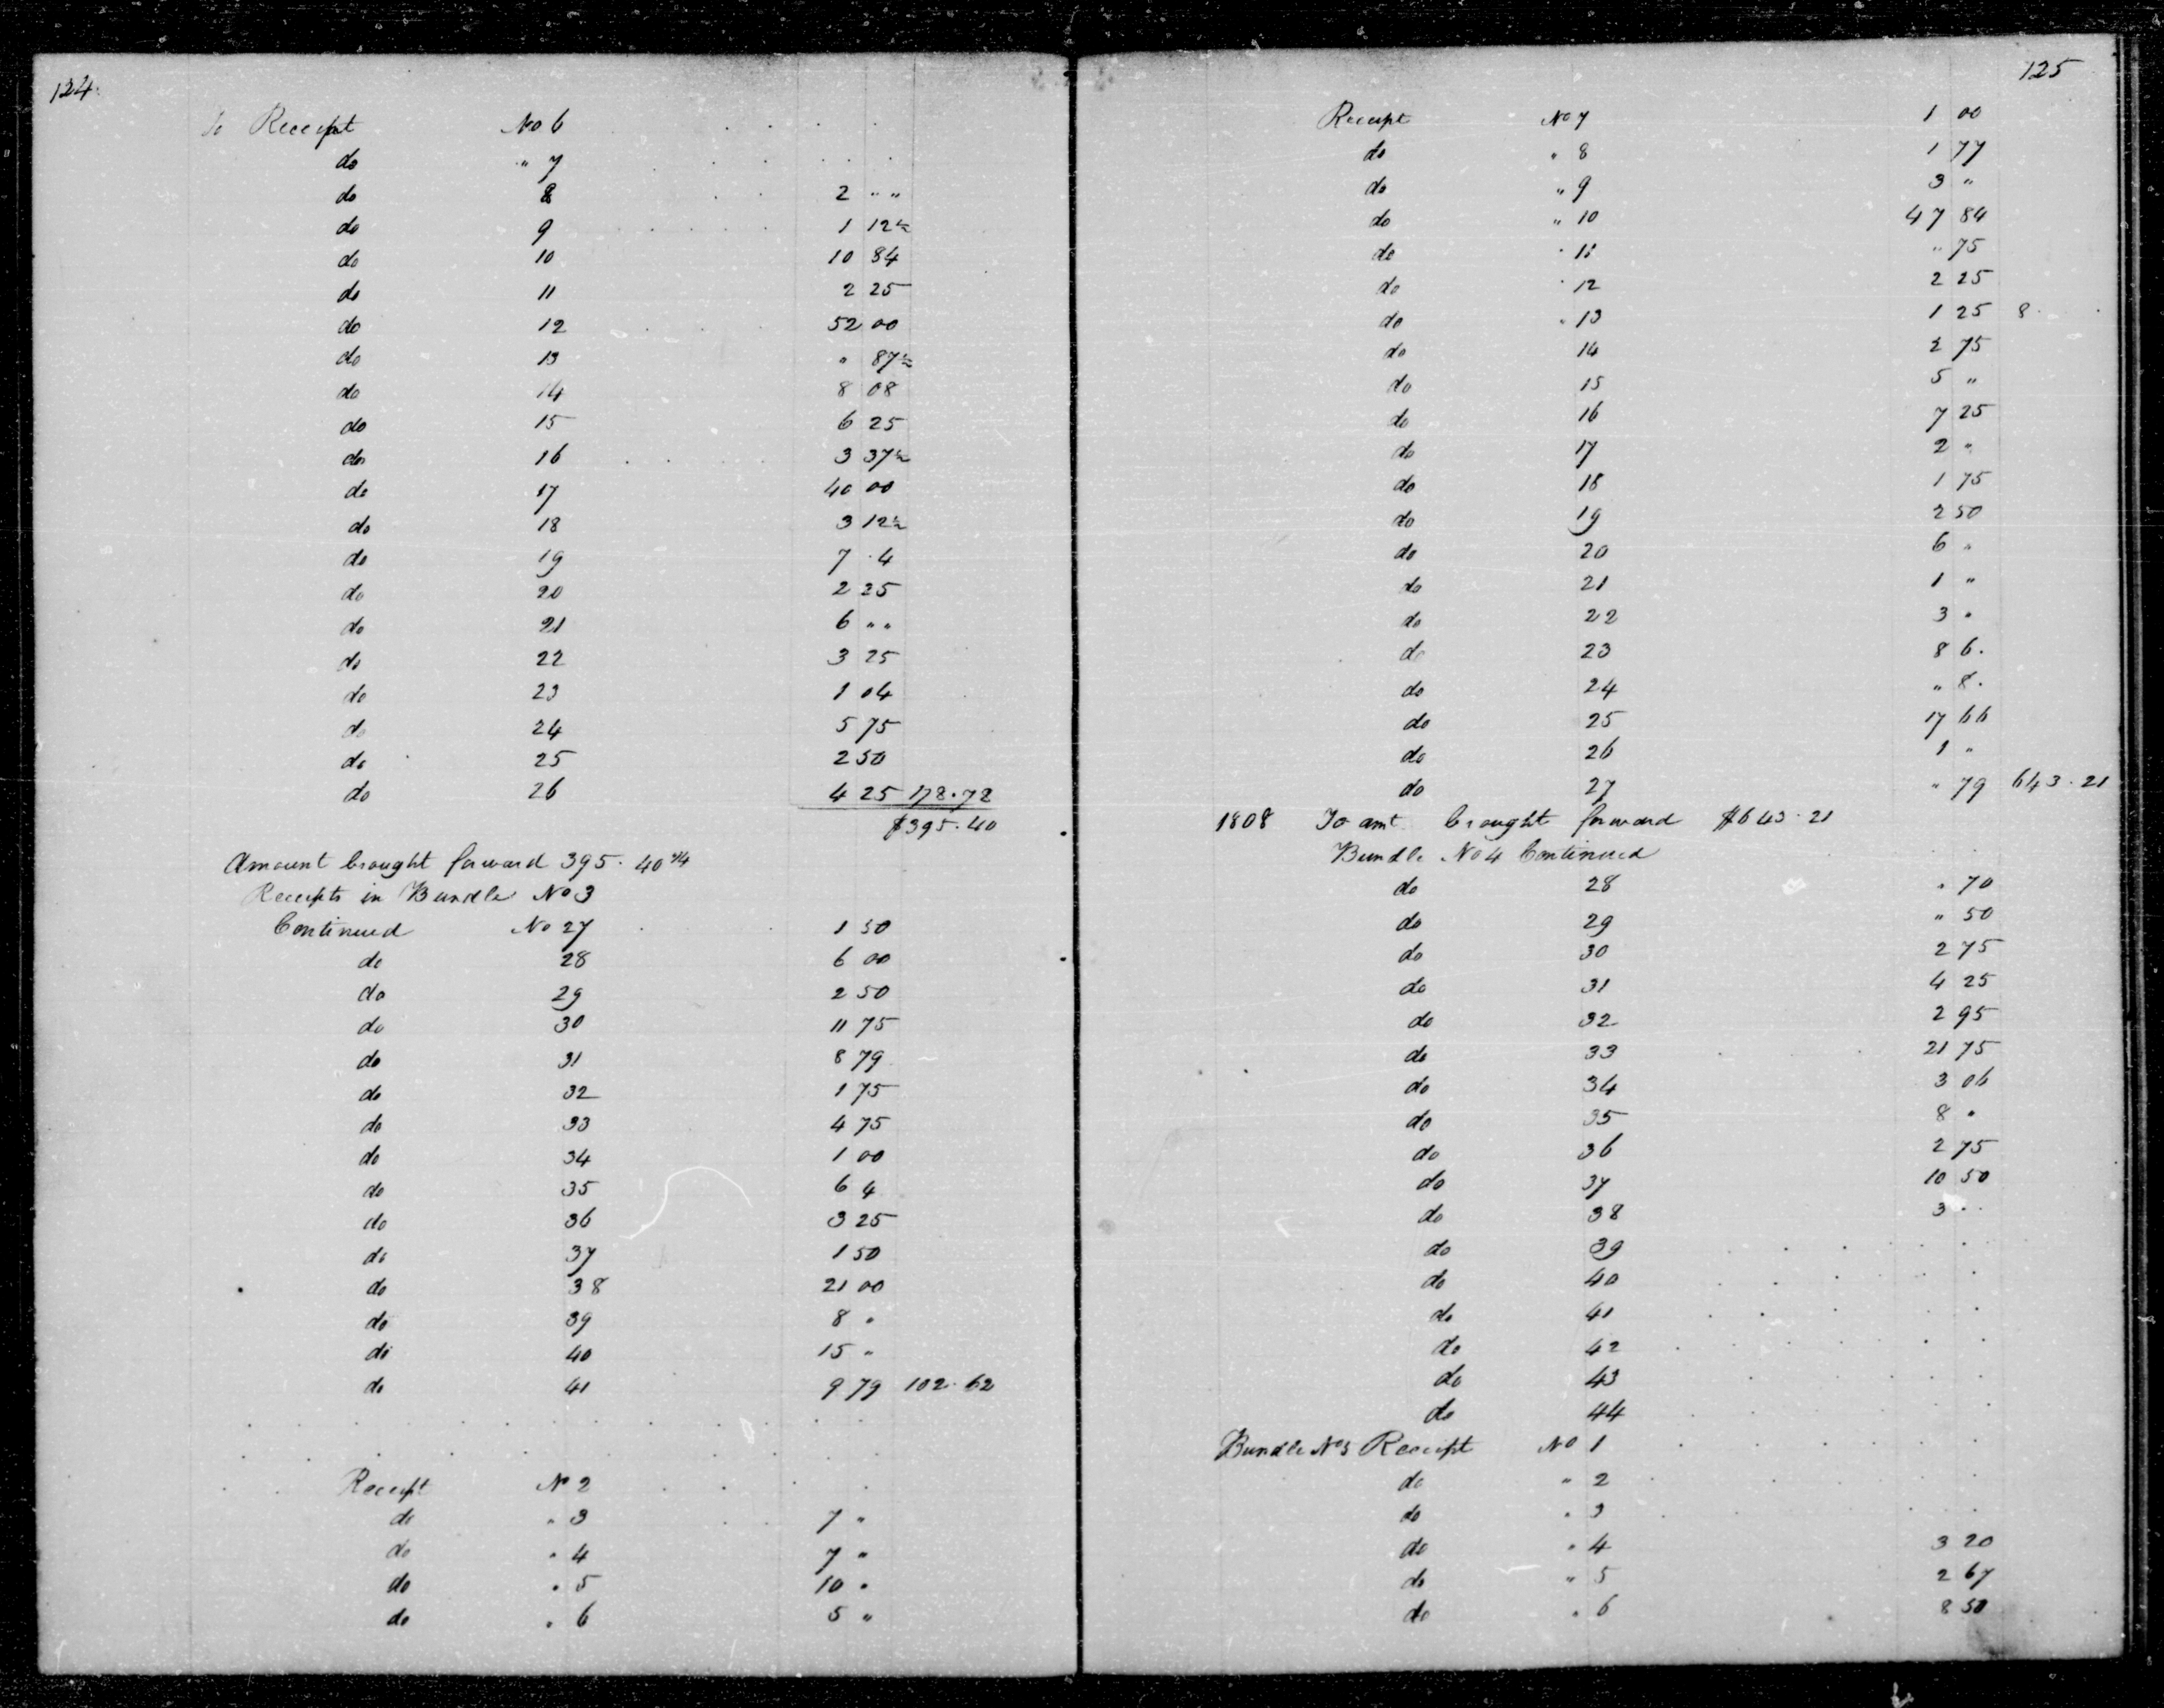 124
To Receipt No 6 . . . .
do " 7 . . . . .
do 8 . . 2 " "
do 9 . . . . . 1 12½
do 10 10 84
do 11 2 25
do 12 . . 52 00
do 13 " 87½
do 14 8 08
do 15 6 25
do 16 . . . 3 37½
do 17 40 00
do 18 3 12½
do 19 7 . 4
do 20 2 25
do 21 6 " "
do 22 3 25
do 23 1 04
do 24 5 75
do 25 2 50
do 26 4 25 178.78
$395.40
Amount brought forward 395.40 3/4
Receipts in Bundle No 3
Continued No 27 . . 1 50
do 28 6 00
do 29 2 50
do 30 11 75
do 31 8 79
do 32 1 75
do 33 4 75
do 34 1 00
do 35 6 4
do 36 3 25
do 37 1 50
do 38 21 00
do 39 8 "
do 40 15 "
do 41 9 79 102.62
. . . . . . . . . . . . .
. . . . . . . .
. . Receipt No 2 . . . .
do " 3 . . 7 "
do " 4 7 "
do " 5 10 "
do " 6 5 "
125
Receipt No 7 1 00
do " 8 1 77
do " 9 3 "
do " 10 47 84
do " 11 " 75
do " 12 2 25
do " 13 1 25 8 . .
do 14 2 75
do 15 5 "
do 16 7 25
do 17 2 "
do 18 1 75
do 19 2 50
do 20 6 "
do 21 1 "
do 22 3 "
do 23 8 6 .
do 24 " 8 .
do 25 17 66
do 26 1 "
do 27 " 79 643.21
1808 To amt brought forward $643.21
Bundle No 4 Continued
do 28 " 70
do 29 " 50
do 30 2 75
do 31 4 25
do 32 2 95
do 33 . . 21 75
do 34 3 06
do 35 8 "
do 36 2 75
do 37 10 50
do 38 3 . .
do 39 . . . . . .
do 40 . . . . . .
do 41 . . . . . .
do 42 . . . . . .
do 43 . . . . .
do 44 . . . . . .
Bundle No 5 Receipt No 1 . . . . . .
do " 2 . . . . .
do " 3 . . . .
do " 4 3 20
do " 5 2 67
do " 6 8 50